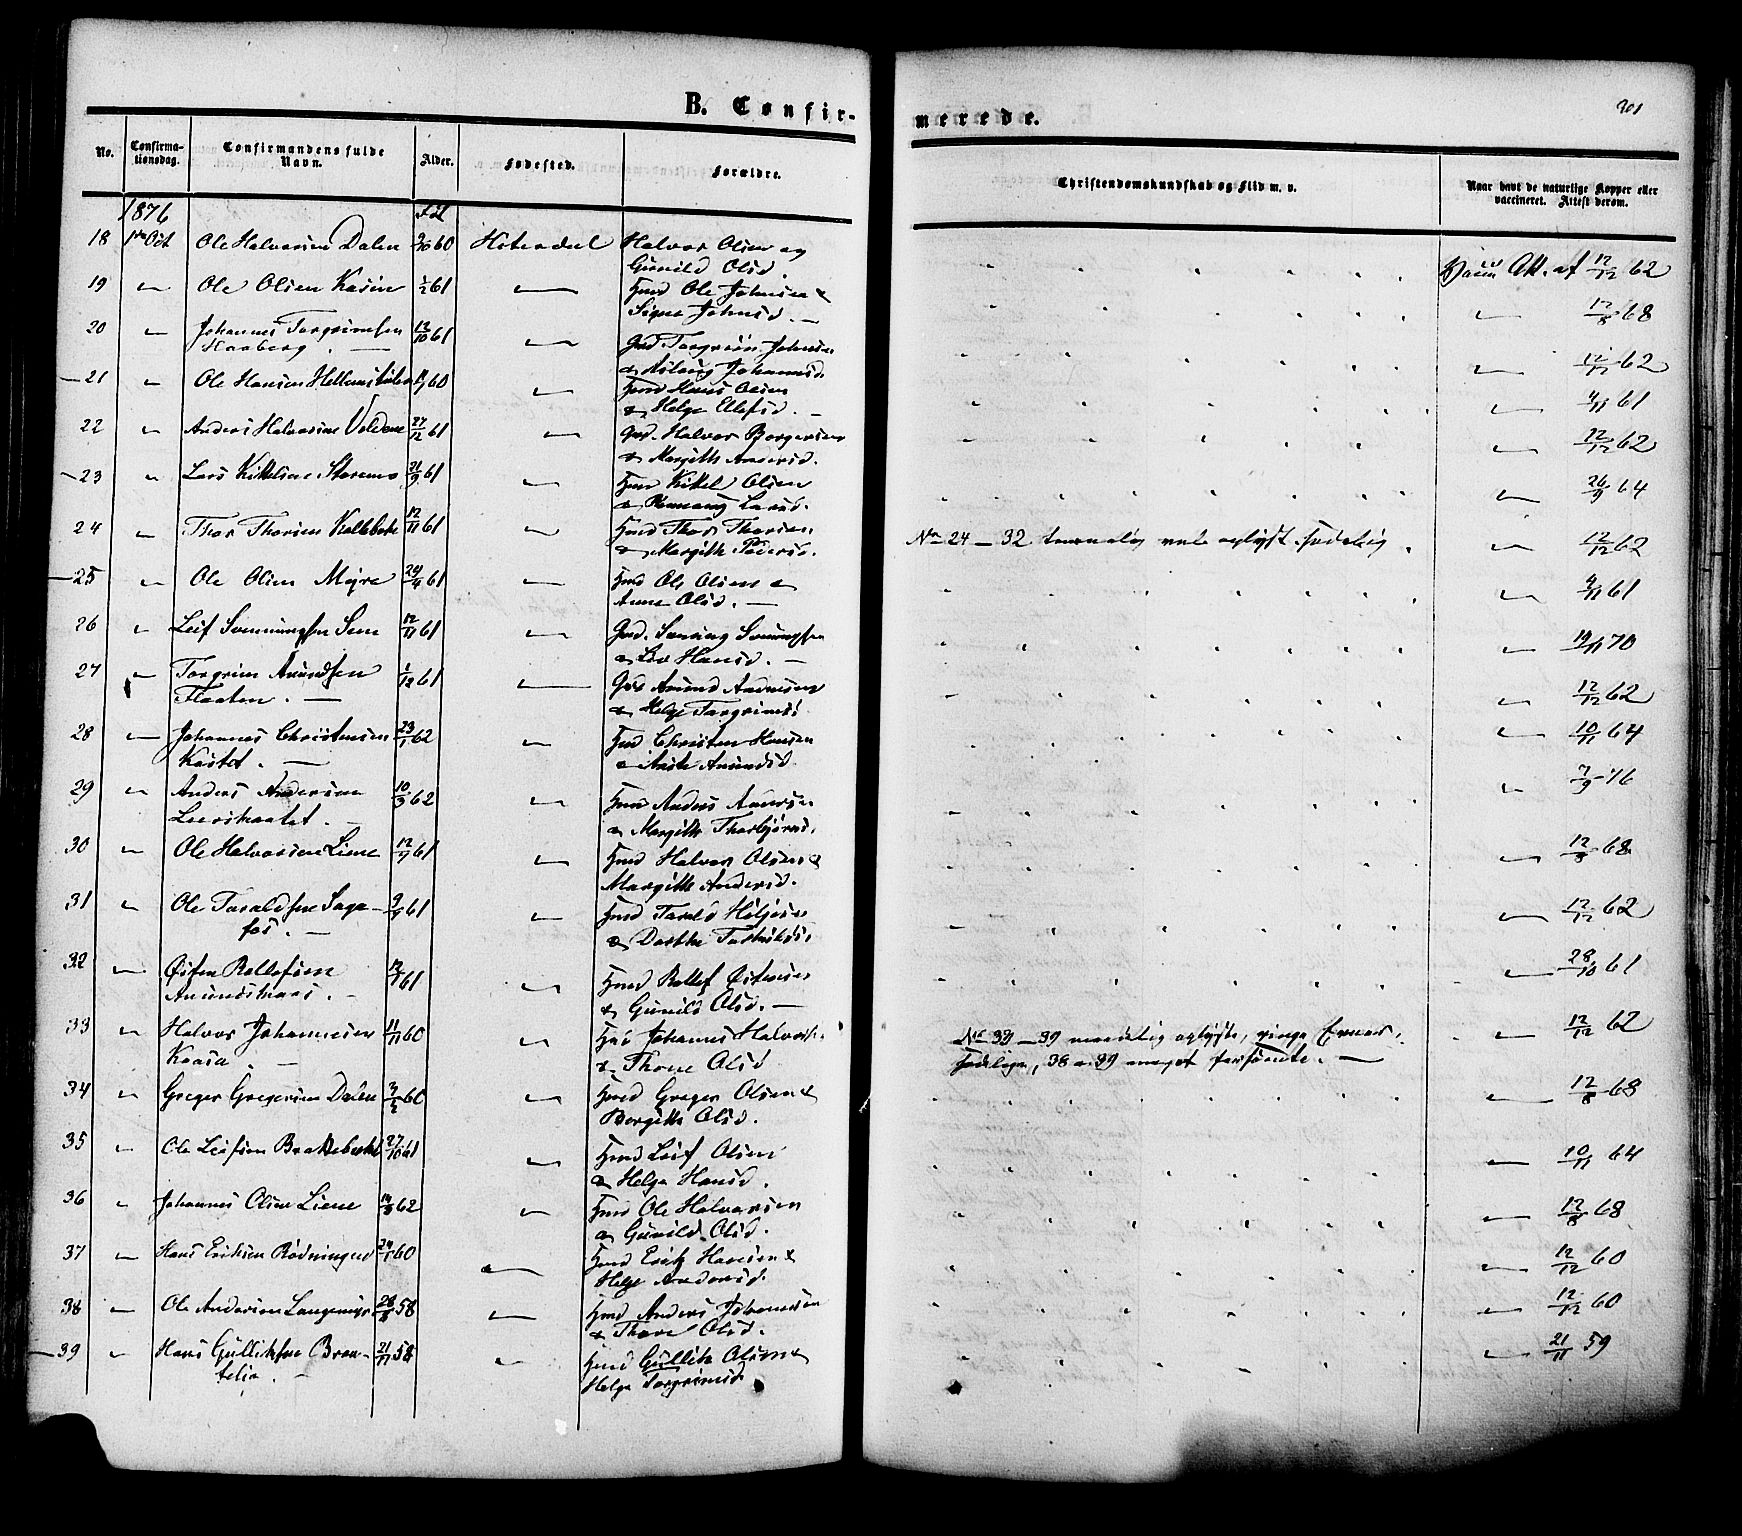 B. Confir-
merede.
301
No.
Confirma-
tionsdag.
Confirmandens fulde
Navn.
Alder.
Fødested.
Forældre.
Christendomskundskab og Flid m. v.
Naar havt de naturlige Kopper eller
vaccineret. Attest derom.
1876
18 1ste Oct Ole Halvorsen Dalen 60 Hiterdal Halvor Olsen og
Gunild Olsd. Att. af 12/12 62
19 Ole Olsen Kasin 1/2 61 Hmd Ole Johnsen &
Signe Johnsd. 12/8 68
20 Johannes Torgrimsen 12/10 61
Haaberg. Grd. Torgrim Johnsen
& Aslaug Johannesd. 12/12 62
21 Ole Hansen 60 Hmd Hans Olsen
& Helge Ellefsd. 61
22 Anders Halvorsen Volden 27/12 61 Grd. Halvor Borgersen
& Margith Andersd. 12/12 62
23 Lars Kittelsen Staremo 21/9 61 Hmd Kittel Olsen
& Rønnaug Larsd. 26/9 64
24 Thor Thorsen 12/11 61 Hmd Thor Thorsen
& Margith Pedersd. No 24 - 32 temmelig vel oplyst. sædelig. 12/12 62
25 Ole Olsen Mejre 61 Hmd Ole Olsen &
Anne Olsd. 61
26 Leif Svenningsen Sem 12/11 61 Grd. Svening Svenningsen
& Liv Hansd. 19/11 70
27 Torgrim Anundsen 1/12 61
Flaaten. Grd Anund Andersen
& Helge Torgrimsd. 12/12 62
28 Johannes Christensen 23/1 62
Kastet. Hmd Christen Hansen
& Aaste Anundsd. 10/11 64
29 Anders Andersen 10/3 62
Hmd Anders Andersen
& Margith Thorbjørnsd. 7/9 76
30 Ole Halvorsen Liene 61 Hmd Halvor Olsen &
Margith Andersd. 12/8 68
31 Ole Taraldsen Sage- 61
fos. Hmd Tarald Høljesen
& Dorthe 12/12 62
32 Østen Rollefsen 61
Hmd Rollef Østensen
& Gunild Olsd. 28/10 61
33 Halvor Johannesen 11/11 60
Kaasa. Johannes Halvorsen
& Thone Olsd oplyste, ringe Evner,
sædelige, 38 & 39 meget forsømte. 12/12 62
34 Greger Gregersen Dalen 60 Hmd Greger Olsen &
Borgith Olsd. 12/8 68
35 Ole Leifsen 27/10 61 Hmd Leif Olsen
& Helga Hansd. 10/11 64
36 Johannes Olsen Liene 62 Hmd Ole Halvorsen
& Gunild Olsd. 12/8 68
37 Hans Eriksen Rødningen 60 Hmd Erik Hansen &
Helge Andersd. 12/12 60
38 Ole Andersen Langemyr 58 Hmd Anders Johannesen
& Thore Olsd. 12/12 60
39 Hans Gulliksen Brem- 21/11 58
Hmd Gullik Olsen &
Helge Torgrimsd 21/11 59